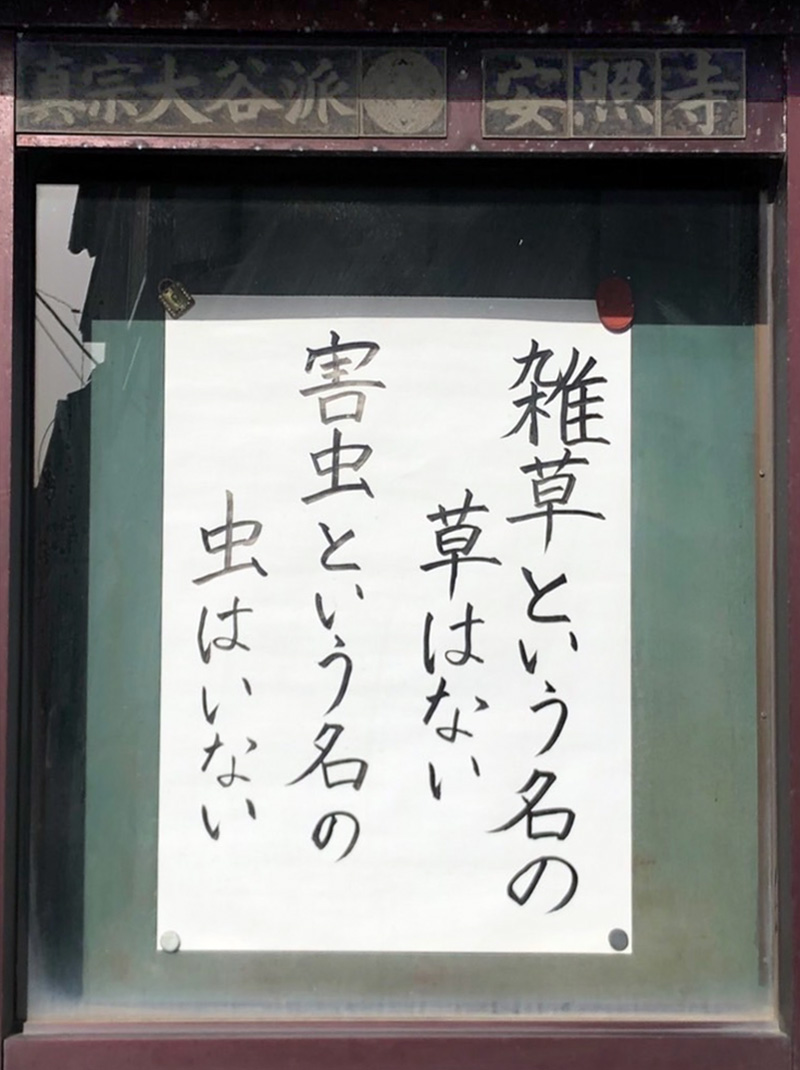 真宗大谷派 安照寺
雑草という名の
草はない
害虫という名の
虫はいない